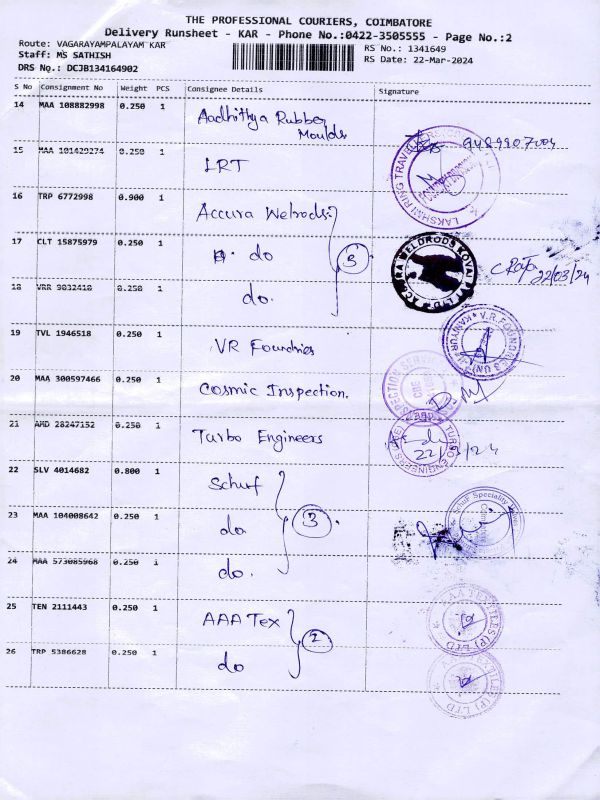 THE PROFESSIONAL COURIERS, COIMBATORE
Delivery Runsheet - KAR - Phone No.:0422-3505555 - Page No.:2
Route: VAGARAYAMPALAYAM KAR
RS No.: 1341649
Staff: MS SATHISH
RS Date: 22-Mar-2024
DRS No.: DCJB134164902
S No Consignment No Weight PCS Consignee Details Signature
14 MAA 108882998 0.250 1 Aadhithya Rubber Moulds
15 MAA 101429274 0.250 1 LRT
16 TRP 6772998 0.900 1 Accura Welrods
17 CLT 15875979 0.250 1 do 3 22/03/24
18 VRR 9032418 0.250 1 do.
19 TVL 1946518 0.250 1 VR Foundries
20 MAA 300597466 0.250 1 Cosmic Inspection.
21 AMD 28247152 0.250 1 Turbo Engineers
22 SLV 4014682 0.800 1 Schuf
23 MAA 104008642 0.250 1 do 3
24 MAA 573085968 0.250 1 do.
25 TEN 2111443 0.250 1 AAA Tex 2
26 TRP 5386628 0.250 1 do
LAKSHMI RING TRAVELLERS
ACCURA WELDRODS KOVAI PVT LTD
V.R. FOUNDRIES UNIT
INSPECTION SERVICE
TURBO ENGINEERS
Schuf Speciality